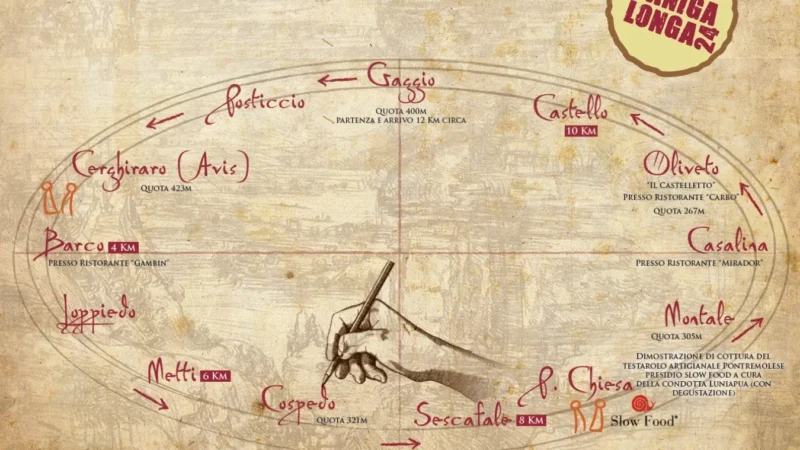 LONGA 24
Gaggio
QUOTA 400M
PARTENZA E ARRIVO 12 KM CIRCA
Posticcio
Castello
10 KM
Cerghiraro (Avis)
QUOTA 423M
Oliveto
"IL CASTELLETTO"
PRESSO RISTORANTE "CARBO"
QUOTA 267M
Barco 4 KM
PRESSO RISTORANTE "GAMBIN"
Casalina
PRESSO RISTORANTE "MIRADOR"
Loppiedo
Montale
QUOTA 305M
DIMOSTRAZIONE DI COTTURA DEL
TESTAROLO ARTIGIANALE PONTREMOLESE
PRESIDIO SLOW FOOD A CURA
DELLA CONDOTTA LUNIAPUA (CON
DEGUSTAZIONE)
Metti 6 KM
Cospedo
QUOTA 321M
Sescafale 8 KM
P. Chiesa
Slow Food®